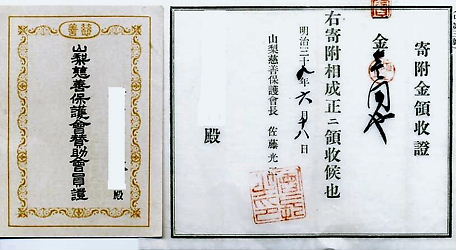 慈善
山梨慈善保護會賛助會員證
殿
寄附金領收證
金壱円也
右寄附相成正ニ領收候也
明治三十九年六月十八日
山梨慈善保護會長 佐藤光
殿